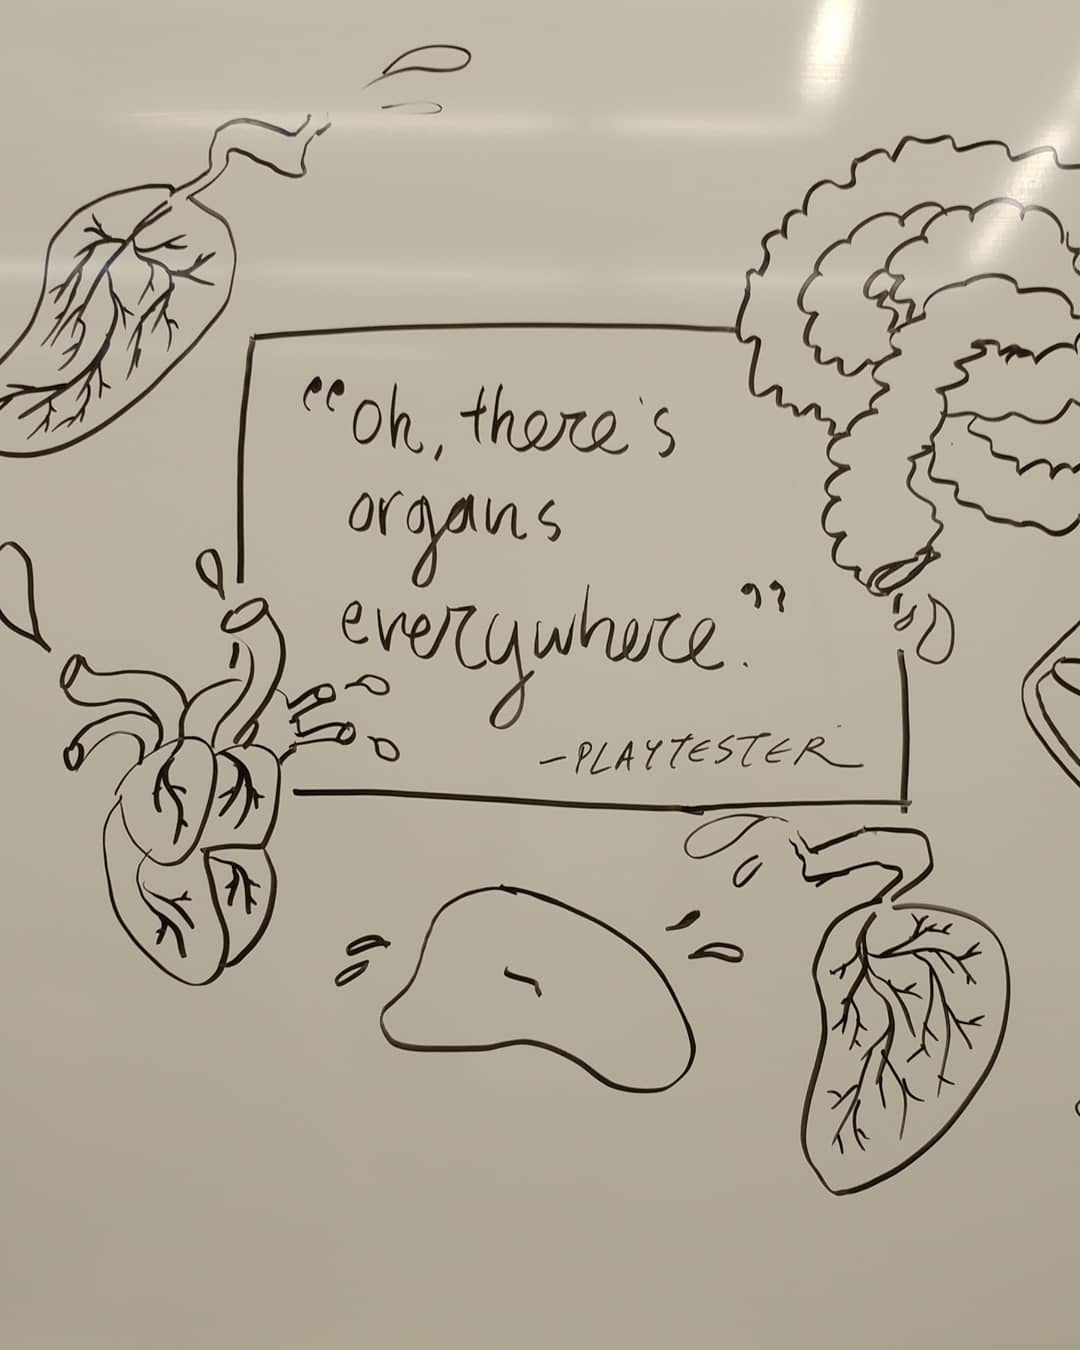 “Oh, there's
organs
everywhere.”
-PLAYTESTER